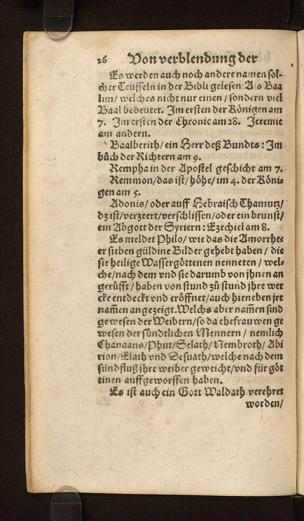 26 Von verblendung der
Es werden auch noch andere namen sol-
cher Teuffeln in der Bibli gelesen: Als Baa
lim/ welches nicht nur einen/ sondern viel
Baal bedeutet. Im ersten der Königen am
7. Im ersten der Chronic am 28. Jeremie
am andern.
Baalberith/ ein Herr deß Bundts: Im
bůch der Richtern am 9.
Rempha in der Apostel geschicht am 7.
Remmon/ das ist/ höhe/ im 4. der Köni-
gen am 5.
Adonis/ oder auff Hebraisch Thamutz/
dz ist/ verzeert/ verschlissen/ oder ein brunst/
ein Abgott der Syriern: Ezechiel am 8.
Es meldet Philo/ wie das die Amorrhe-
er sieben güldine Bilder gehebt haben/ die
sie heilige Wassergöttinen nenneten/ wel-
che/ nach dem vnd sie darumb von jhnen an
gerüfft/ haben von stund zů stund jhre wer
cke entdeckt vnd eröffnet/ auch hieneben jre
nam̃en angezeigt. Welchs aber nam̃en sind
gewesen der Weibern/ so da ehefrauwen ge
wesen der sündtlichen Mennern/ nemlich
Chanaans/ Phut/ Selath/ Nembroth/ Abi
rion/ Elath vnd Desuath/ welche nach dem
sündfluß jhre weiber geweicht/ vnd für göt
tinen auffgeworffen haben.
Es ist auch ein Gott Waldath verehret
worden/